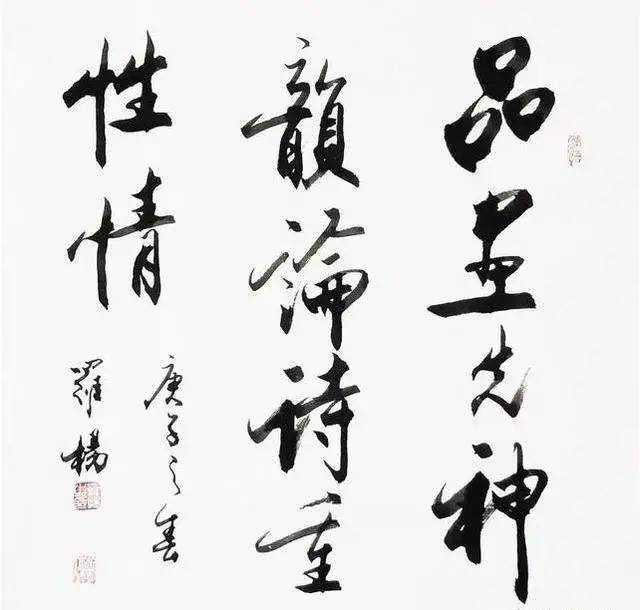 品畫先神
韻論诗重
性情
庚子之春
羅楊